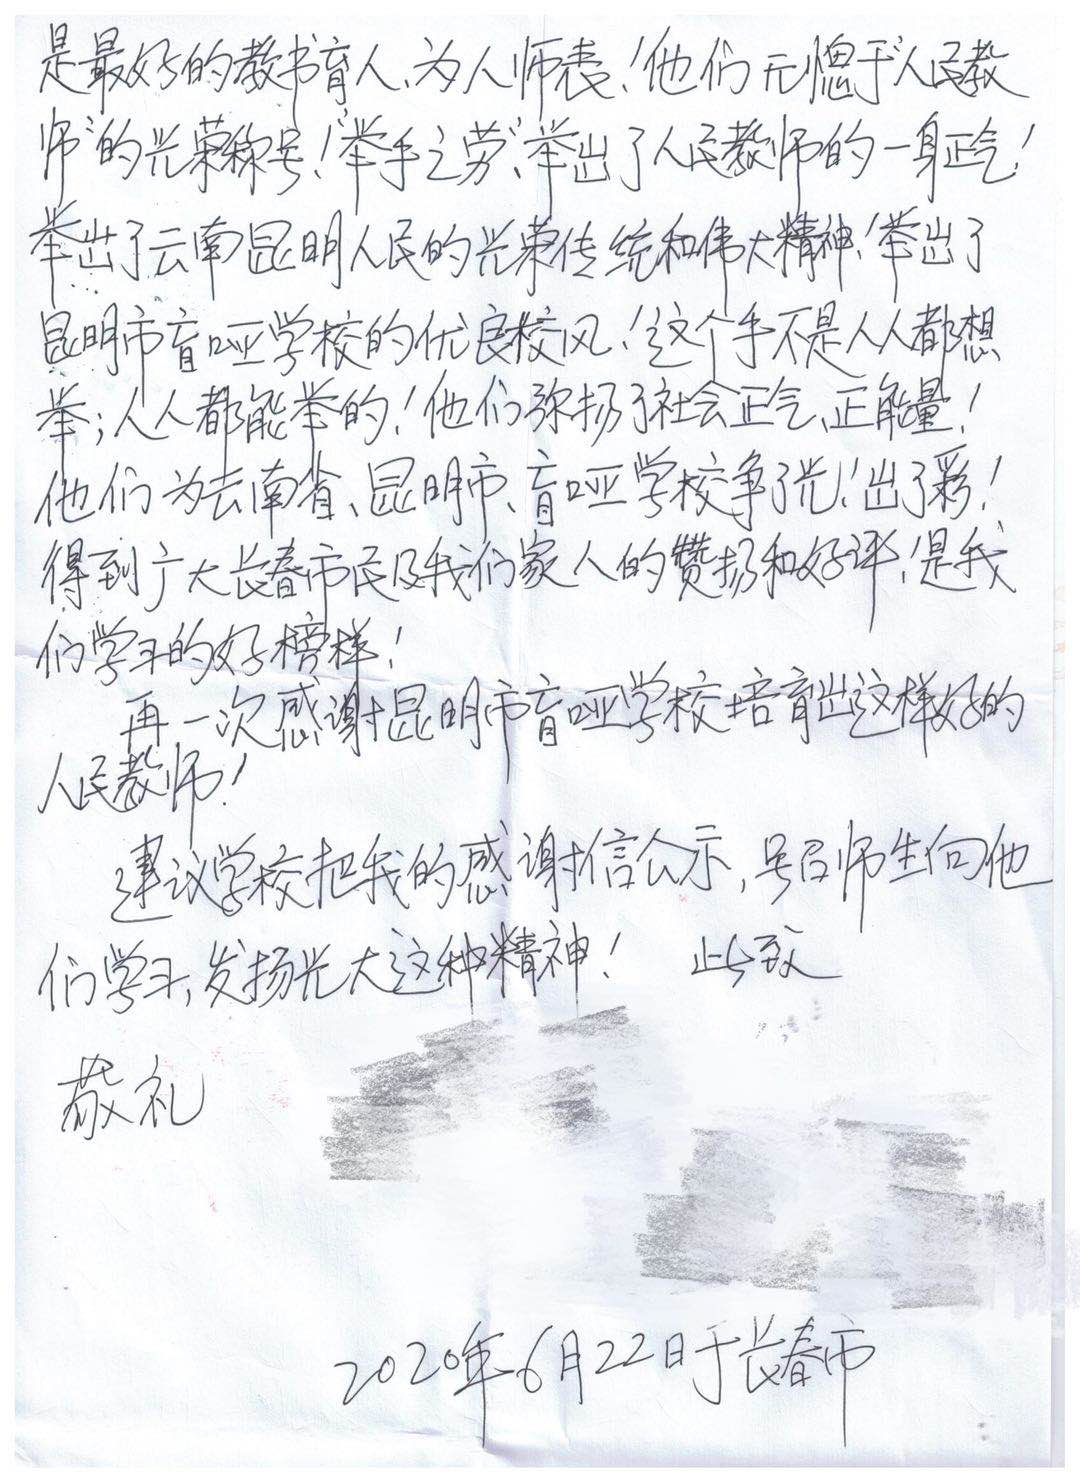 是最好的教书育人、为人师表！他们无愧于“人民教
师”的光荣称号！“举手之劳”、举出了人民教师的一身正气！
举出了云南昆明人民的光荣传统和伟大精神！举出了
昆明市盲哑学校的优良校风！这个手不是人人都想
举；人人都能举的！他们弥扬了社会正气、正能量！
他们为云南省、昆明市、盲哑学校争了光！出了彩！
得到广大长春市民及我们家人的赞扬和好评！是我
们学习的好榜样！
再一次感谢昆明市盲哑学校培育出这样好的
人民教师！
建议学校把我的感谢信公示，号召师生向他
们学习，发扬光大这种精神！ 此致
敬礼
2020年6月22日于长春市